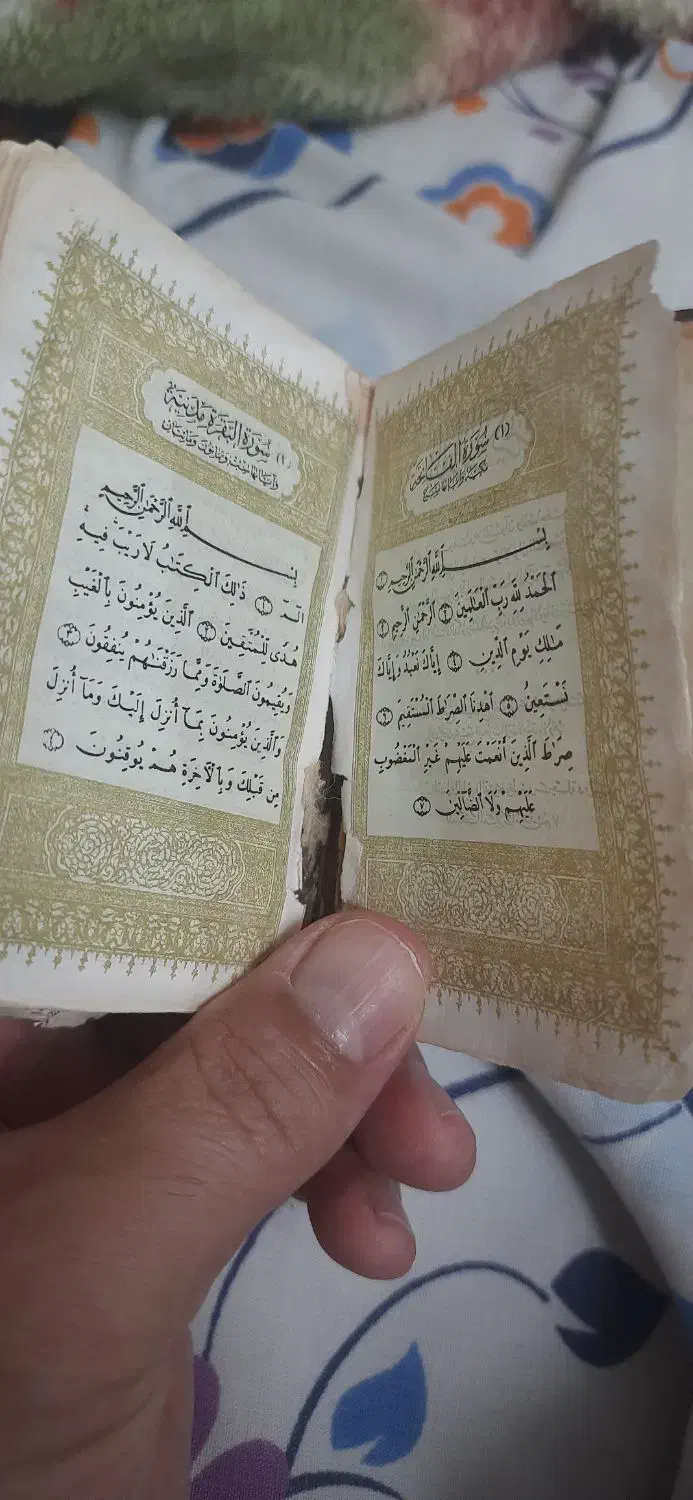 (١) سُورَةُ الفَاتِحَةِ
مكيّة وآياتها سبع
بِسْمِ ٱللَّهِ ٱلرَّحْمَٰنِ ٱلرَّحِيمِ ۝١
ٱلْحَمْدُ لِلَّهِ رَبِّ ٱلْعَٰلَمِينَ ۝٢ ٱلرَّحْمَٰنِ ٱلرَّحِيمِ ۝٣
مَٰلِكِ يَوْمِ ٱلدِّينِ ۝٤ إِيَّاكَ نَعْبُدُ وَإِيَّاكَ
نَسْتَعِينُ ۝٥ ٱهْدِنَا ٱلصِّرَٰطَ ٱلْمُسْتَقِيمَ ۝٦
صِرَٰطَ ٱلَّذِينَ أَنْعَمْتَ عَلَيْهِمْ غَيْرِ ٱلْمَغْضُوبِ
عَلَيْهِمْ وَلَا ٱلضَّآلِّينَ ۝٧
(٢) سُورَةُ البَقَرَةِ مَدَنِيَّة
وآياتها ست وثمانون ومائتان
بِسْمِ ٱللَّهِ ٱلرَّحْمَٰنِ ٱلرَّحِيمِ
الٓمٓ ۝١ ذَٰلِكَ ٱلْكِتَٰبُ لَا رَيْبَ فِيهِ
هُدًى لِّلْمُتَّقِينَ ۝٢ ٱلَّذِينَ يُؤْمِنُونَ بِٱلْغَيْبِ
وَيُقِيمُونَ ٱلصَّلَوٰةَ وَمِمَّا رَزَقْنَٰهُمْ يُنفِقُونَ ۝٣
وَٱلَّذِينَ يُؤْمِنُونَ بِمَآ أُنزِلَ إِلَيْكَ وَمَآ أُنزِلَ
مِن قَبْلِكَ وَبِٱلْءَاخِرَةِ هُمْ يُوقِنُونَ ۝٤